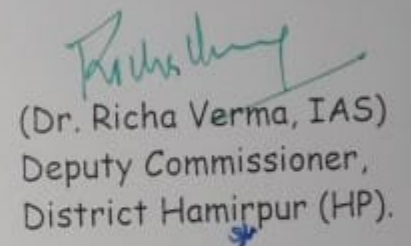 (Dr. Richa Verma, IAS)
Deputy Commissioner,
District Hamirpur (HP).